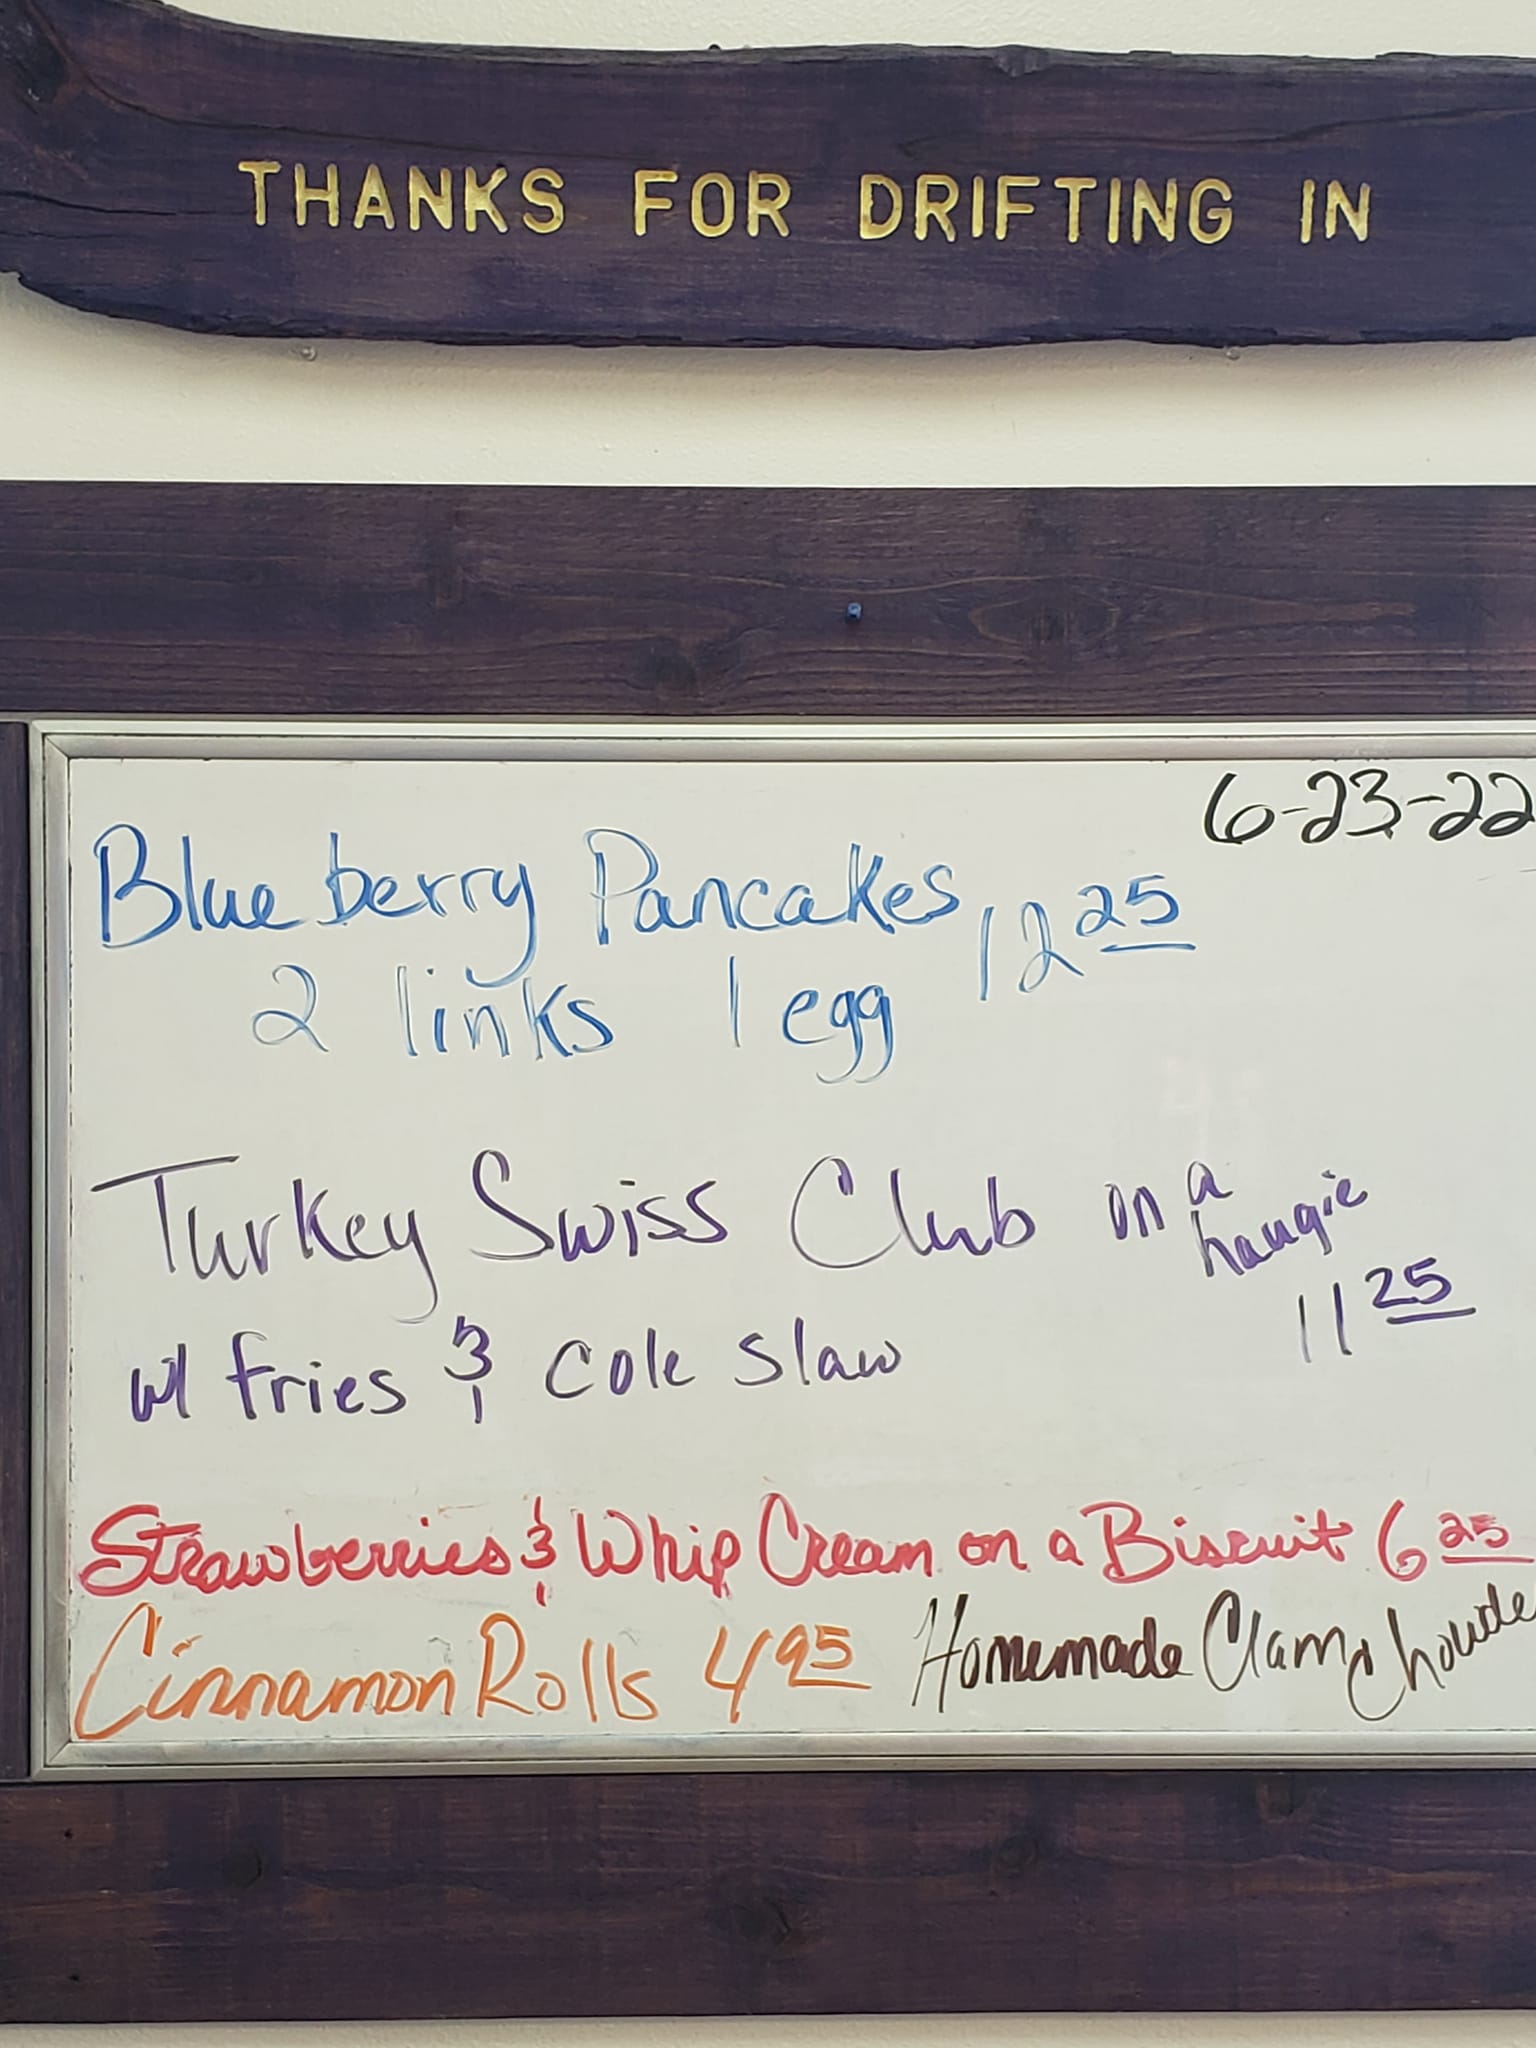 THANKS FOR DRIFTING IN
6-23-22
Blueberry Pancakes 12 25
2 links 1 egg
Turkey Swiss Club on a
haugie
11 25
w/ fries & cole slaw
Strawberries & Whip Cream on a Biscuit 6 25
Cinnamon Rolls 4 95 Homemade Clam Chowde